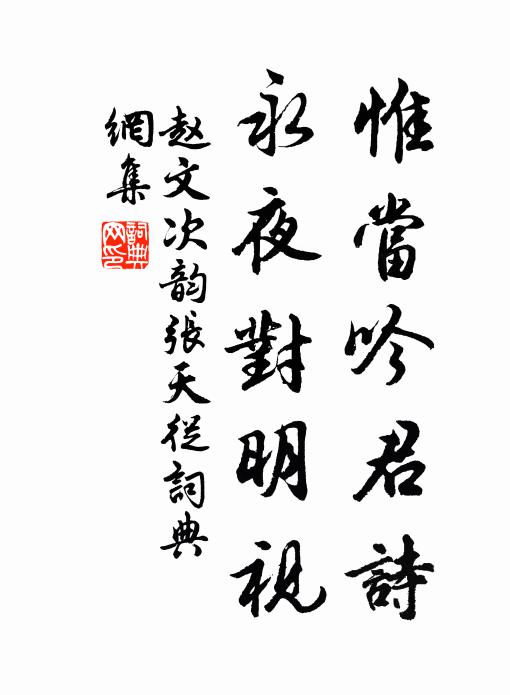 惟當吟君詩
永夜對明視
赵文次韵張天從詞典
網集
詞典網印